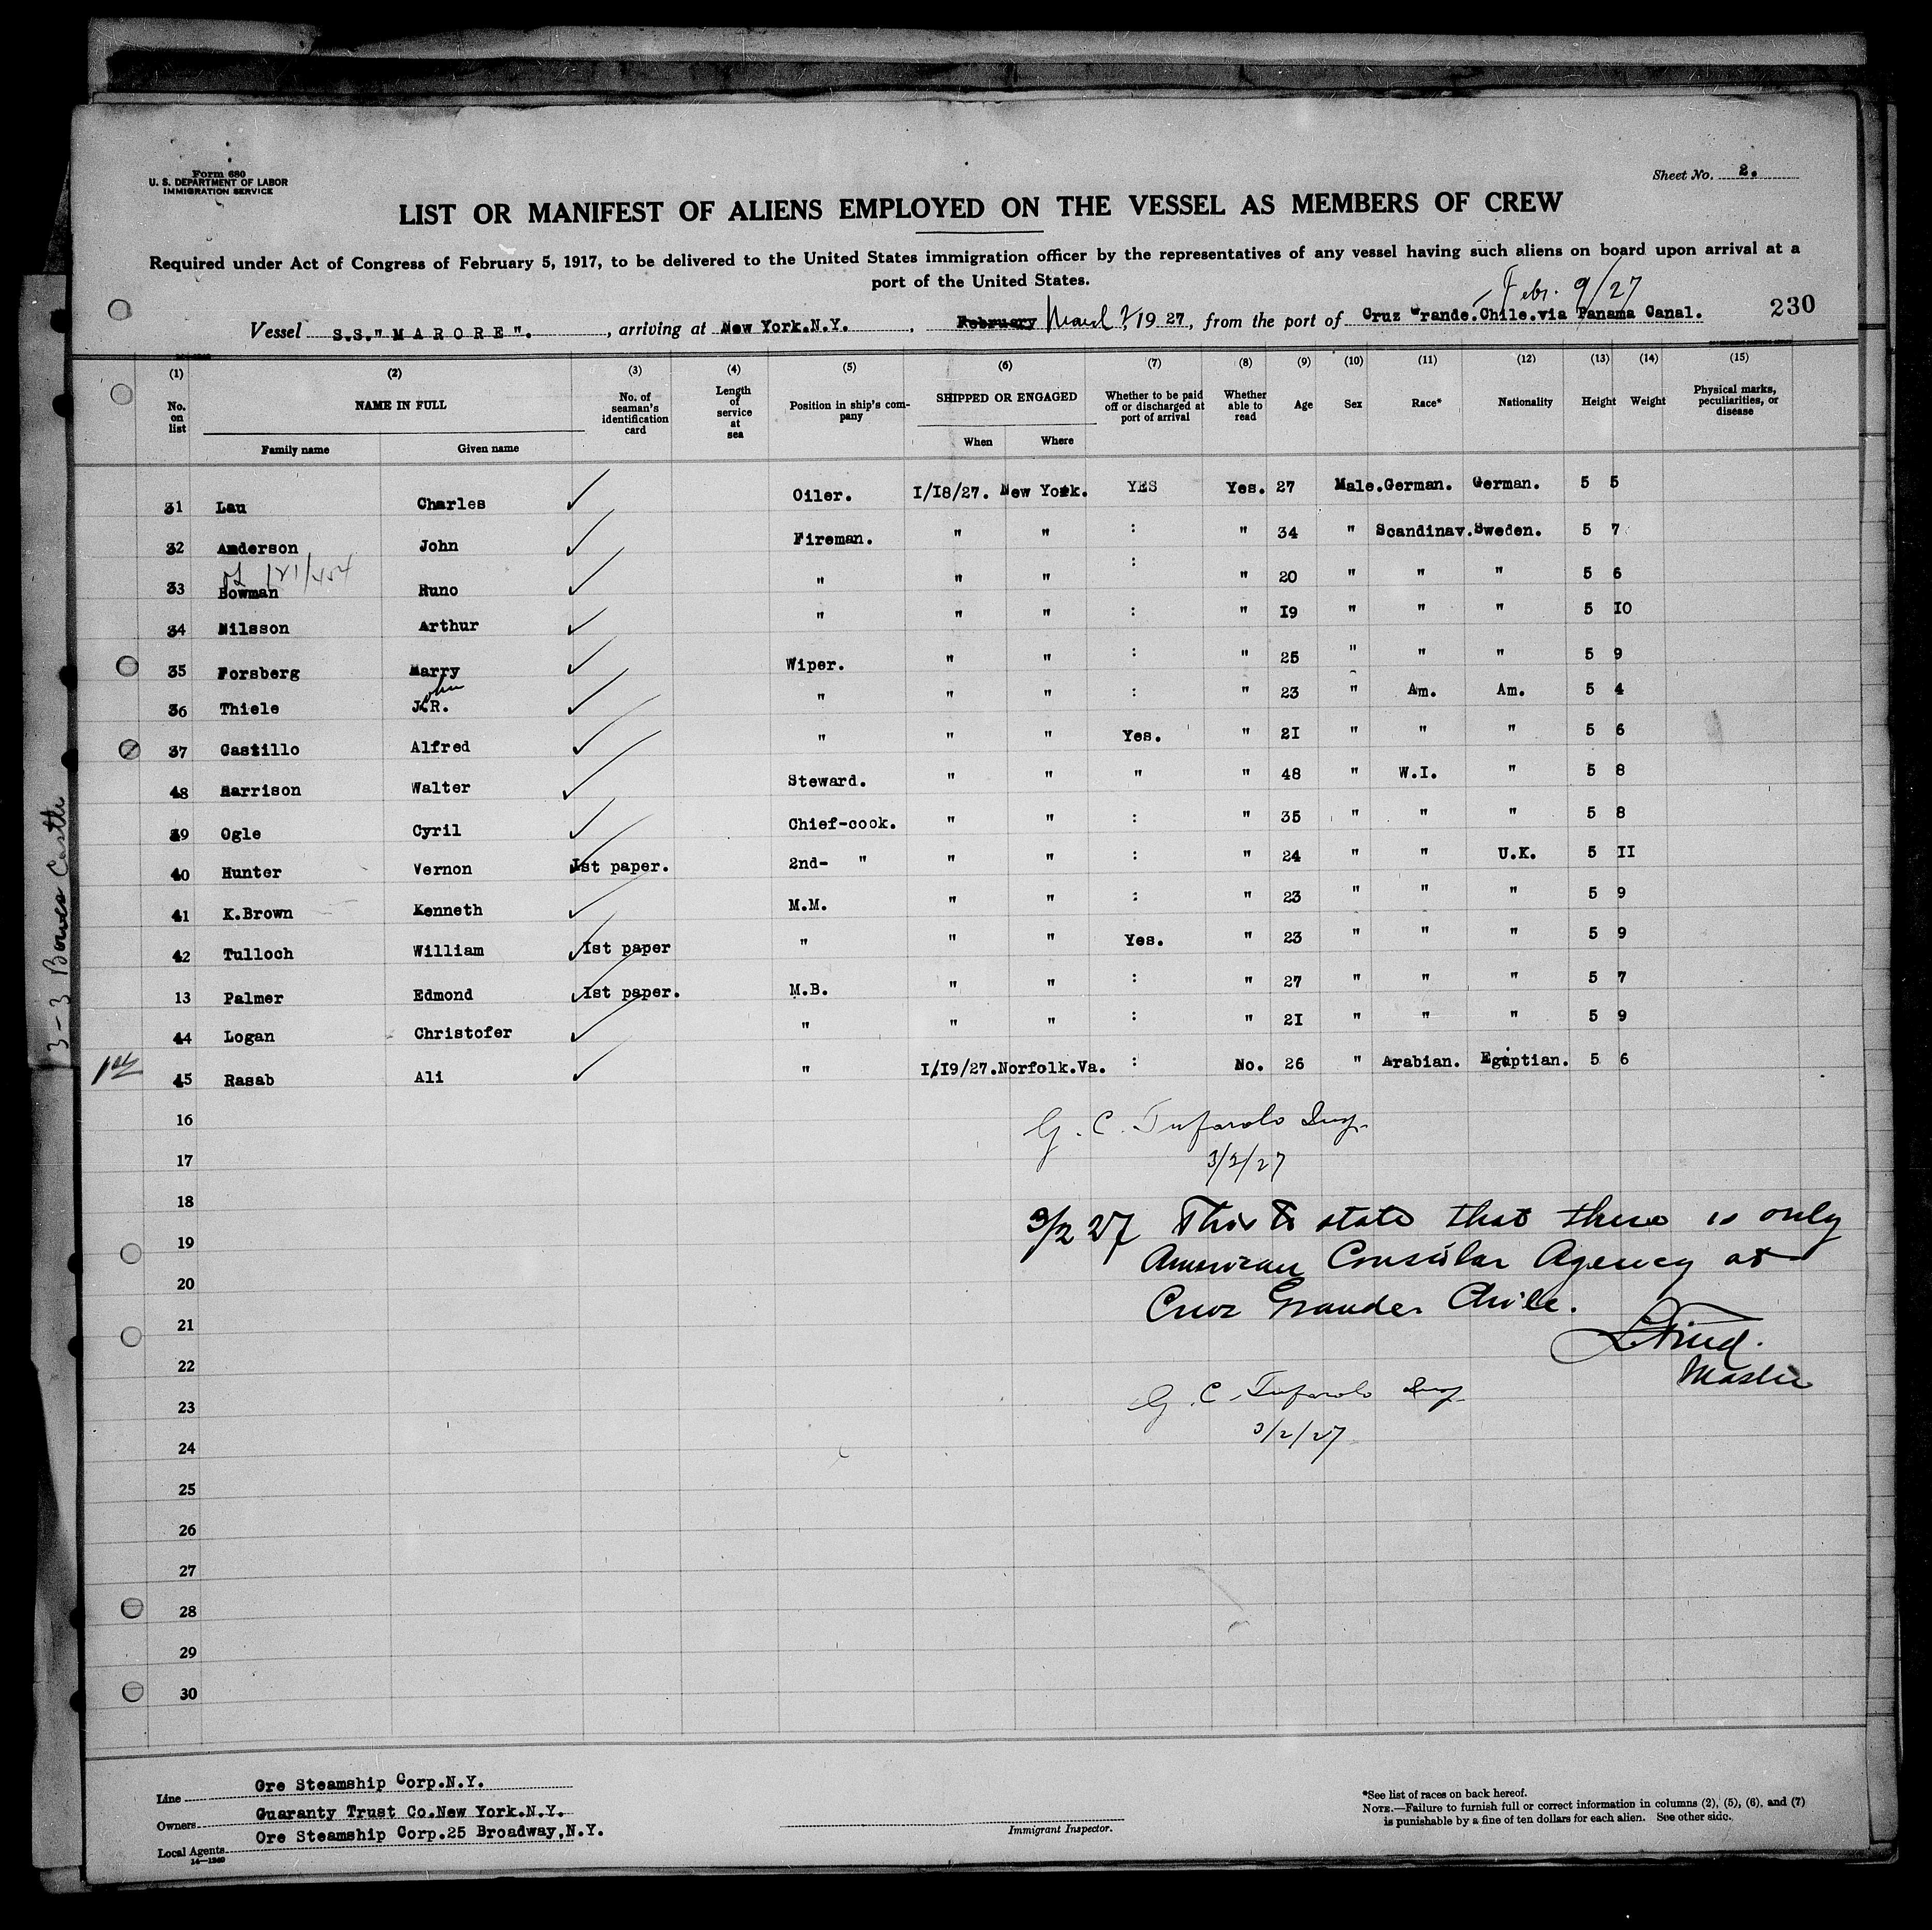 Form 680
U. S. DEPARTMENT OF LABOR
IMMIGRATION SERVICE
Sheet No. 2.
LIST OR MANIFEST OF ALIENS EMPLOYED ON THE VESSEL AS MEMBERS OF CREW
Required under Act of Congress of February 5, 1917, to be delivered to the United States immigration officer by the representatives of any vessel having such aliens on board upon arrival at a
port of the United States.
Febr. 9/27
Vessel S.S."MARORE". , arriving at New York.N.Y. , February March 2, 1927, from the port of Cruz Grande.Chile.via Panama Canal. 230
(1) (2) (3) (4) (5) (6) (7) (8) (9) (10) (11) (12) (13) (14) (15)
No. on list NAME IN FULL Family name Given name No. of seaman's identification card Length of service at sea Position in ship's company SHIPPED OR ENGAGED When Where Whether to be paid off or discharged at port of arrival Whether able to read Age Sex Race* Nationality Height Weight Physical marks, peculiarities, or disease
31 Lau Charles ✓ Oiler. I/I8/27. New York. YES Yes. 27 Male. German. German. 5 5
32 Anderson John ✓ Fireman. " " : " 34 " Scandinav. Sweden. 5 7
121/454
33 Bowman Runo ✓ " " " : " 20 " " " 5 6
34 Nilsson Arthur ✓ " " " : " I9 " " " 5 I0
35 Forsberg Harry ✓ Wiper. " " : " 25 " " " 5 9
John
36 Thiele J.R. ✓ " " " : " 23 " Am. Am. 5 4
37 Castillo Alfred ✓ " " " Yes. " 2I " " " 5 6
48 Harrison Walter ✓ Steward. " " " " 48 " W.I. " 5 8
39 Ogle Cyril ✓ Chief-cook. " " : " 35 " " " 5 8
40 Hunter Vernon ✓ Ist paper. 2nd- " " " : " 24 " " U.K. 5 II
41 K.Brown Kenneth ✓ M.M. " " : " 23 " " " 5 9
42 Tulloch William ✓ Ist paper " " " Yes. " 23 " " " 5 9
13 Palmer Edmond ✓ Ist paper. M.B. " " : " 27 " " " 5 7
44 Logan Christofer ✓ " " " : " 2I " " " 5 9
45 Rasab Ali ✓ " I/I9/27. Norfolk.Va. : No. 26 " Arabian. Egiptian. 5 6
16
17
18
19
20
21
22
23
24
25
26
27
28
29
30
G. C. Tufarolo Insp.
3/2/27
3/2 27 This to state that there is only
American Consular Agency at
Cruz Grande Chile.
Master
G. C. Tufarolo Insp.
3/2/27
3-3 Bowes Castle
Line Ore Steamship Corp.N.Y.
Owners Guaranty Trust Co.New York.N.Y.
Local Agents Ore Steamship Corp.25 Broadway,N.Y.
14—1240
Immigrant Inspector.
*See list of races on back hereof.
NOTE.—Failure to furnish full or correct information in columns (2), (5), (6), and (7)
is punishable by a fine of ten dollars for each alien. See other side.